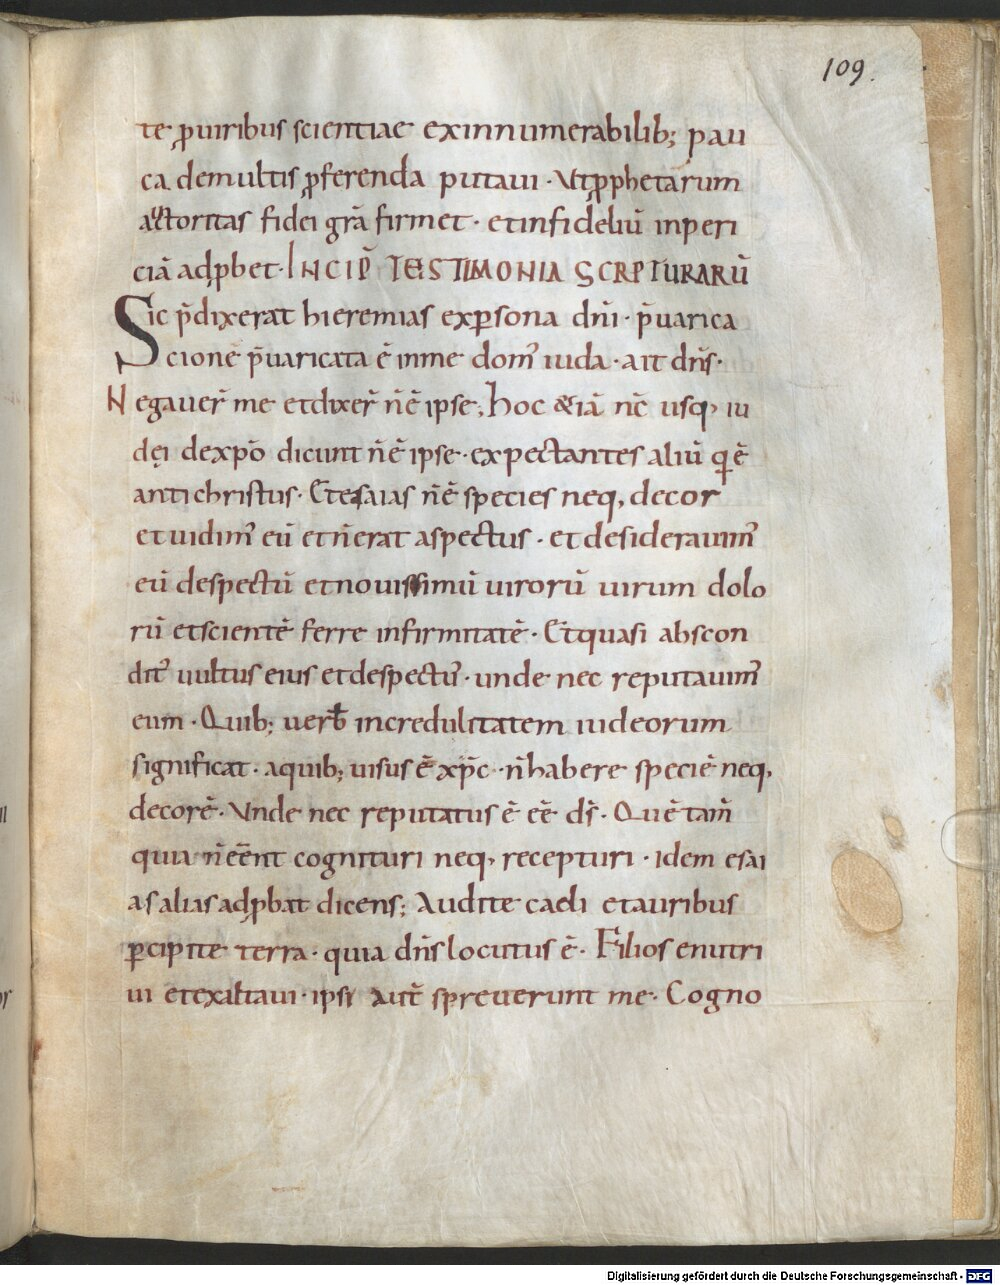 109.
te ꝓ uiribus scientiae exinnumerabilib; pau
ca demultis ꝓferenda putaui · Ut ꝓphetarum
auctoritas fidei grā firmet · etinfideliū inperi
ciā adꝓbet · INCIP̄ TESTIMONIA SCRPTURARŪ
Sic p̄dixerat hieremias exꝑsona dn̄i · p̄uarica
cionē p̄uaricata ē inme dom᾽ iuda · ait dn̄s ·
Negauer̄ me etdixer̄ n̄ ē ipse; hoc &iā nc̄ usq, iu
dei dexp̄o dicunt n̄ ē ipse · expectantes aliū q̄ ē
antichristus · Etesaias n̄ ē species neq, decor
etuidim᾽ eū et n̄ erat aspectus · et desiderauim᾽
eū despectū etnouissimū uirorū uirum dolo
rū etscientē ferre infirmitatē · Etquasi abscon
dit᾽ uultus eius etdespect᾽ · unde nec reputauim᾽
eum · Quib; uerb̄ incredulitatem iudeorum
significat · aquib; uisus ē xp̄c · n̄ habere speciē neq,
decorē · Unde nec reputatus ē eē ds̄ · Quē tam̄
quia n̄ eēnt cognituri neq, recepturi · idem esai
as alias adꝓbat dicens; Audite caeli etauribus
ꝑcipite terra · quia dn̄s locutus ē · Filios enutri
ui etexaltaui · ipsi aut̄ spreuerunt me · Cogno
Digitalisierung gefördert durch die Deutsche Forschungsgemeinschaft - DFG